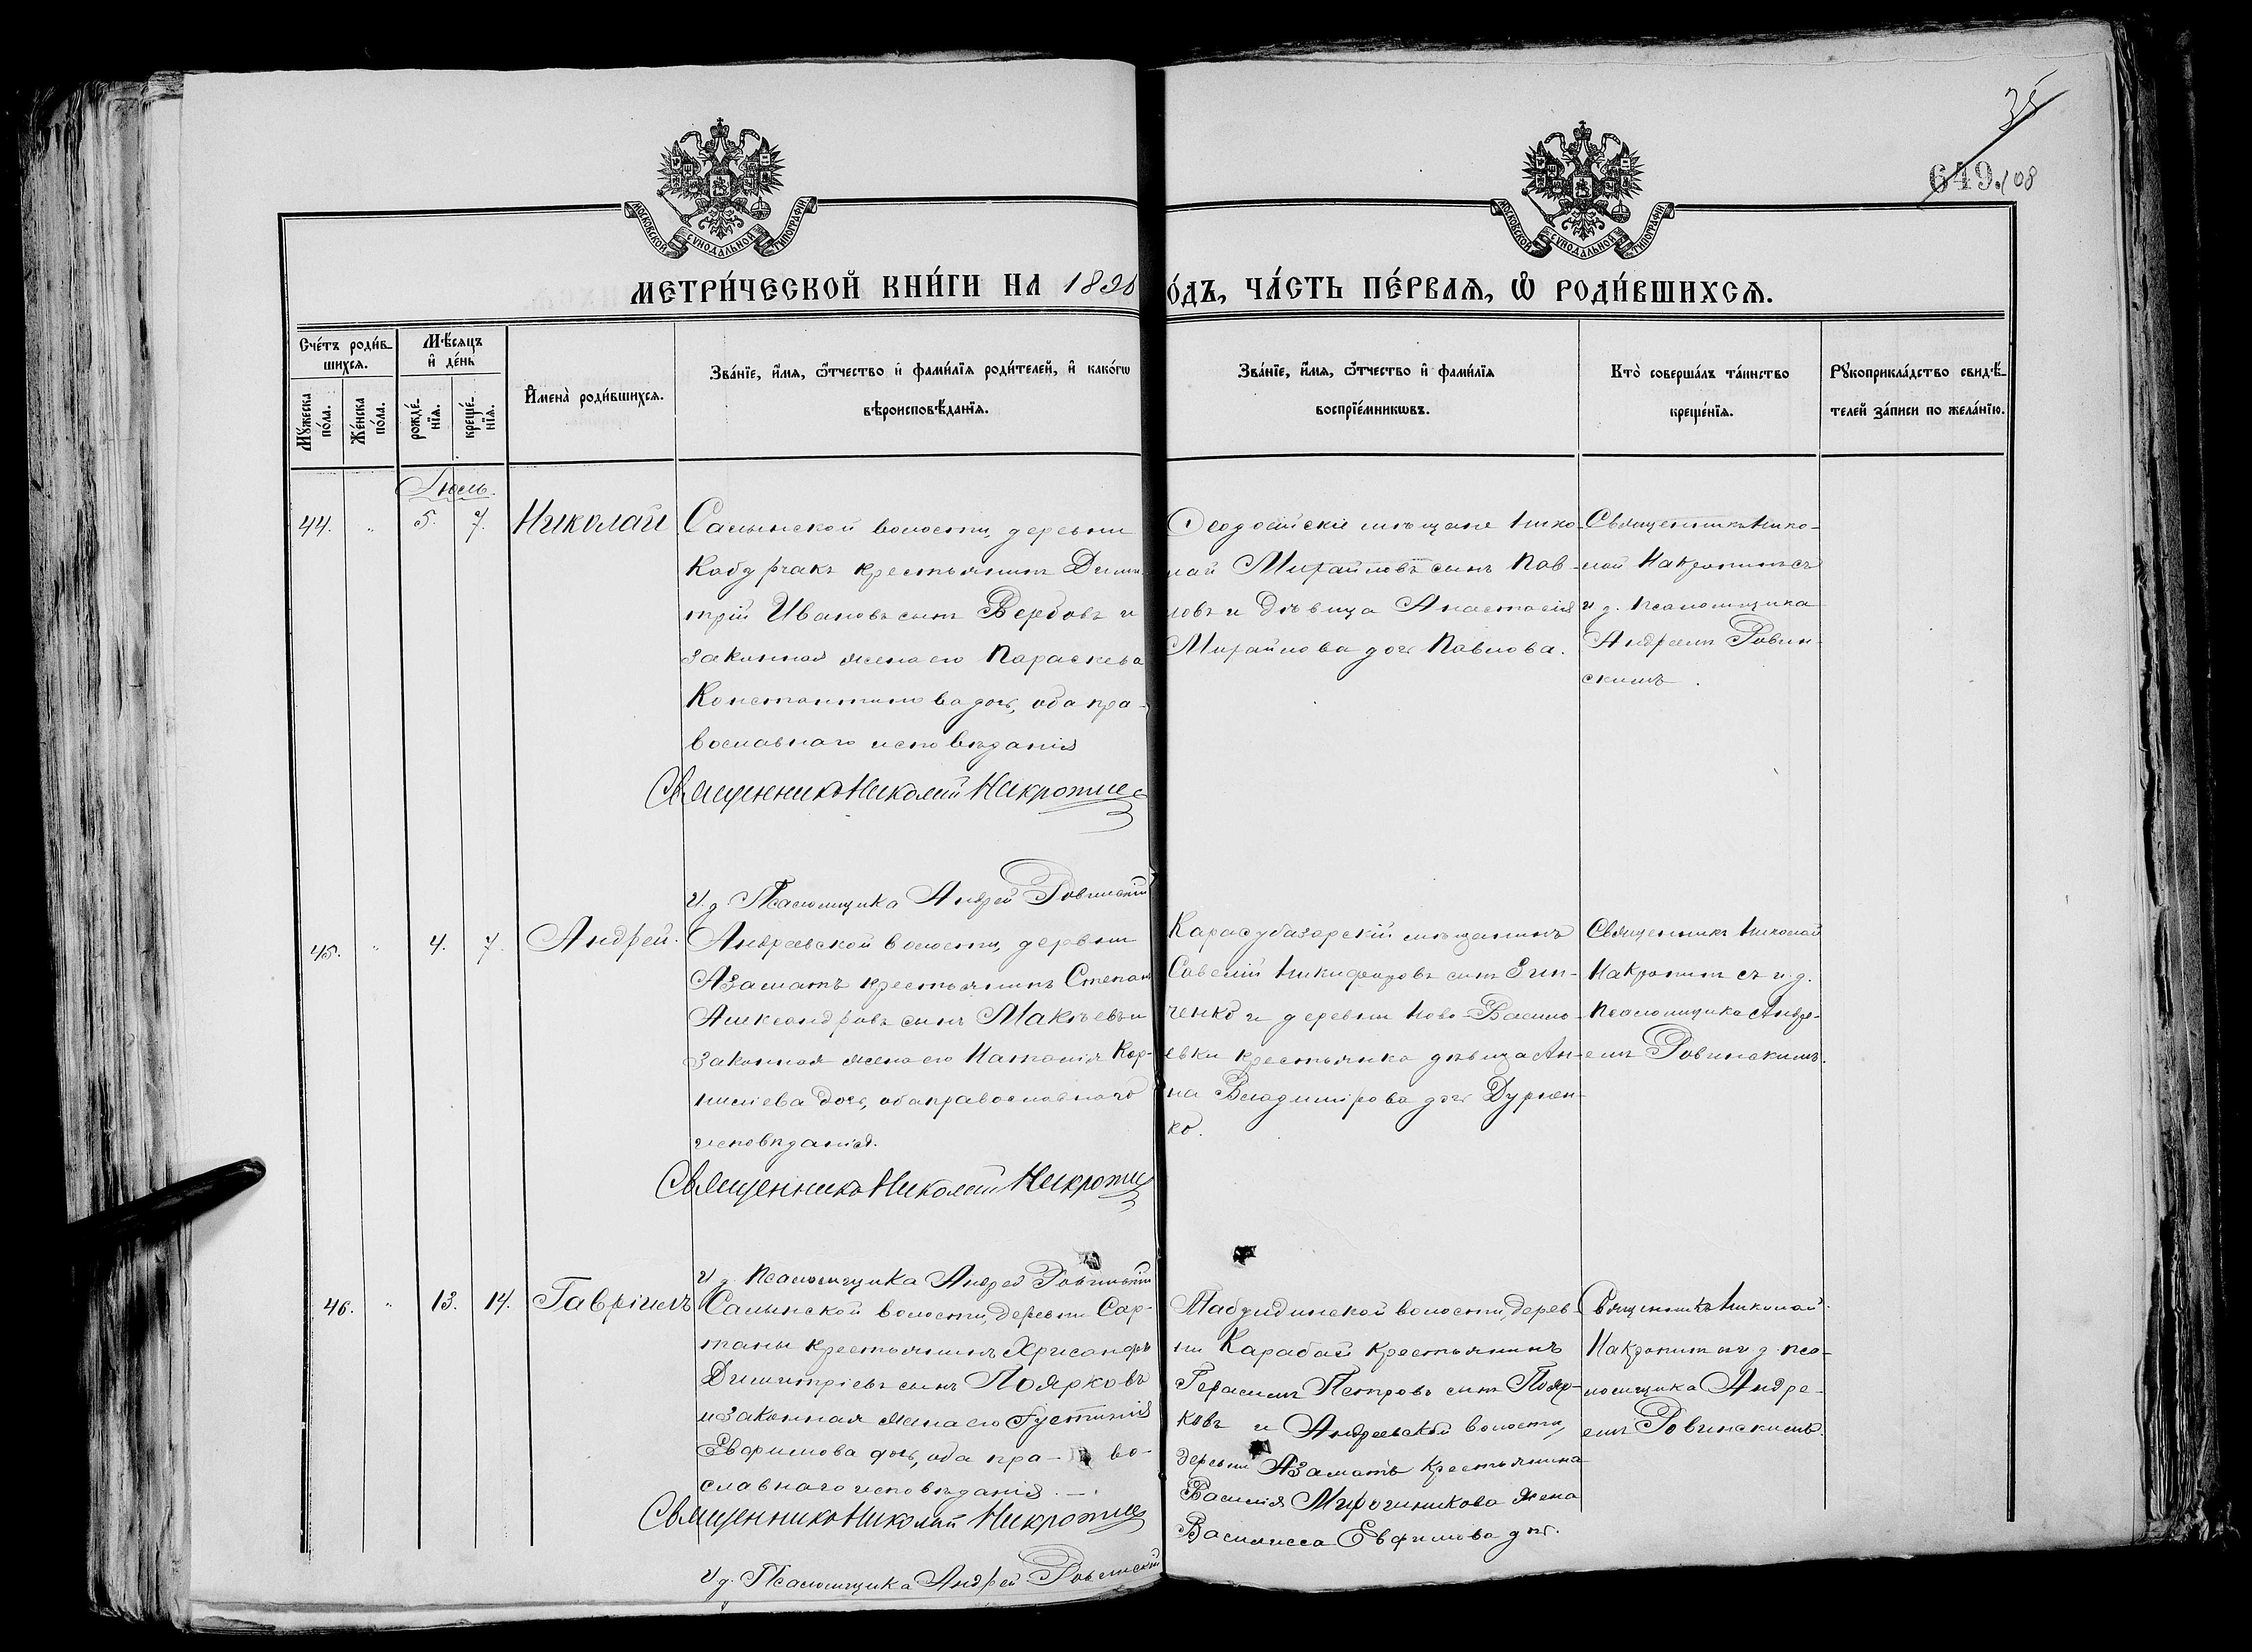 35
649. 108
МОСКОВСКОЙ СУНОДАЛЬНОЙ ТИПОГРАФІИ
МОСКОВСКОЙ СУНОДАЛЬНОЙ ТИПОГРАФІИ
МЕТРИ́ЧЕСКОЙ КНИ́ГИ НА 1890
О́ДЪ, ЧА́СТЬ ПЕ́РВАѦ, Ѽ РОДИ́ВШИХСѦ.
Сче́тъ роди́в-
шихсѧ.
Мѣ́сѧцъ
и҆ де́нь
Мꙋ́жеска
по́ла.
Же́нска
по́ла.
рожде́-
нїѧ.
креще́-
нїѧ.
И҆мена̀ роди́вшихсѧ.
Зва́нїе, и҆́мѧ, ѻ҆́тчество и҆ фами́лїѧ роди́телей, и҆ како́гѡ
вѣроисповѣ́данїѧ.
Зва́нїе, и҆́мѧ, ѻ҆́тчество и҆ фами́лїѧ
воспрїе́мникѡвъ.
Кто̀ соверша́лъ та́инство
креще́нїѧ.
Рꙋкоприкла́дство свидѣ́-
телей за́писи по жела́нїю.
Іюль.
44. " 5. 7. Николай
Салынской волости, деревни
Кабурчакъ крестьянинъ Дими-
трій Ивановъ сынъ Вербовъ и
законная жена его Параскева
Константинова дочь, оба пра-
вославнаго исповѣданія
Священникъ Николай Накропин
И. д. Псаломщика Андрей Ровинскій
Ѳеодосійскіе мѣщане Нико-
лай Михайловъ сынъ Пав-
ловъ и дѣвица Анастасія
Михайлова дочь Павлова.
Священникъ Нико-
лай Накропинъ съ
и д. псаломщика
Андреемъ Ровин-
скимъ.
45. " 4. 7. Андрей.
Андреевской волости, деревни
Азаматъ крестьянинъ Степанъ
Александровъ сынъ Макѣевъ и
законная жена его Наталія Кор-
нилиева дочь, оба православнаго
исповѣданія.
Священникъ Николай Накропин
И д. Псаломщика Андрей Ровинскій
Карасубазарскій мѣщанинъ
Савелій Никифоровъ сынъ
ченко и деревни Ново-Василь-
евки крестьянка дѣвица Ан-
на Владимірова дочь Дурнен-
ко.
Священникъ Николай
Накропинъ съ и. д.
псаломщика Андре-
емъ Ровинскимъ.
46. " 13. 14. Гавріилъ
Салынской волости, деревни Сар-
таны крестьянинъ Хрисанфъ
Димитріевъ сынъ Поярковъ
и законная жена его Іустинія
Евфимова дочь, оба пра- во-
славнаго исповѣданія. —.
Священникъ Николай Накропин
И д. Псаломщика Андрей Ровинскій
Табулдинской волости, дерев-
ни Карабай крестьянинъ
Герасимъ Петровъ сынъ Пояр-
ковъ и Андреевской волости,
деревни Азаматъ крестьянина
Василія Мирошникова жена
Василисса Евфимова дочь.
Священникъ Николай
Накропинъ и д. пса-
ломщика Андре-
емъ Ровинскимъ.